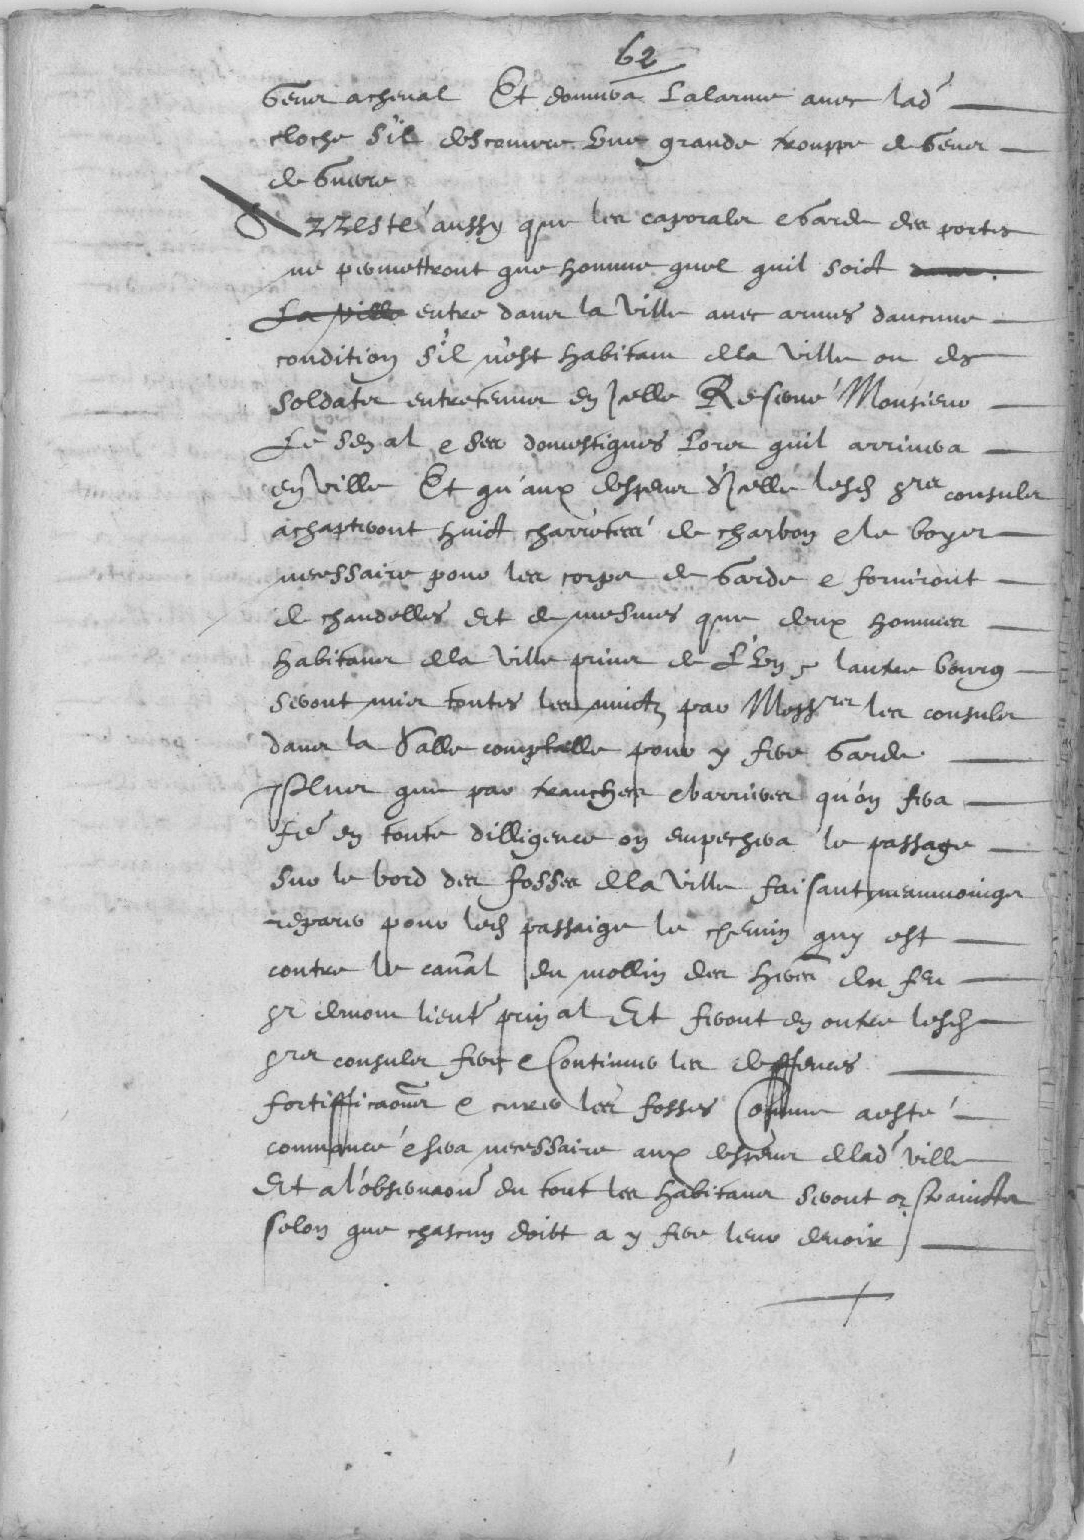 62
gens acheval Et donnera Lalarme avec lad
cloche Sil descouvre une grande trouppe de gens
de guerre
Arresté aussy que les caporals e garde des portes
ne permettront que homme quel quil soict
La ville entre dans la Ville avec armes daucune
condition Sil n'est habitant de la Ville ou des
soldats entretenus en Icelle Reservé Monsieur
Le Senal e ses domestiques Lors quil arrivera
en Ville Et qu'aux despens d'Icelle lesd srs consuls
achaptront huict charretées de charbon e le boys
necessaire pour les corps de garde e forniront
de chandelles Et de mesmes que deux hommes
habitans de la Ville prins de L'un e lautre bourg
seront mis toutes les nuictz par Messrs les consuls
dans la Salle comptalle pour y fere garde
Plus que par tranches e barrieres qu'on fera
fe en toute dilligence on empechera le passage
sur le bord des fosses de la Ville faisant neanmoings
reparer pour led passaige le chemin quy est
contre le canal du mollin des hers du feu
sr lieut prinal Et feront en outre lesd
srs consuls fere e Continuer les deffences
fortifficaons e curer les fosses Comme a esté
commancé e sera necessaire aux despens de lad ville
Et a l'observaon du tout les habitans seront constrainctz
selon que chascun doibt a y fere leur devoir